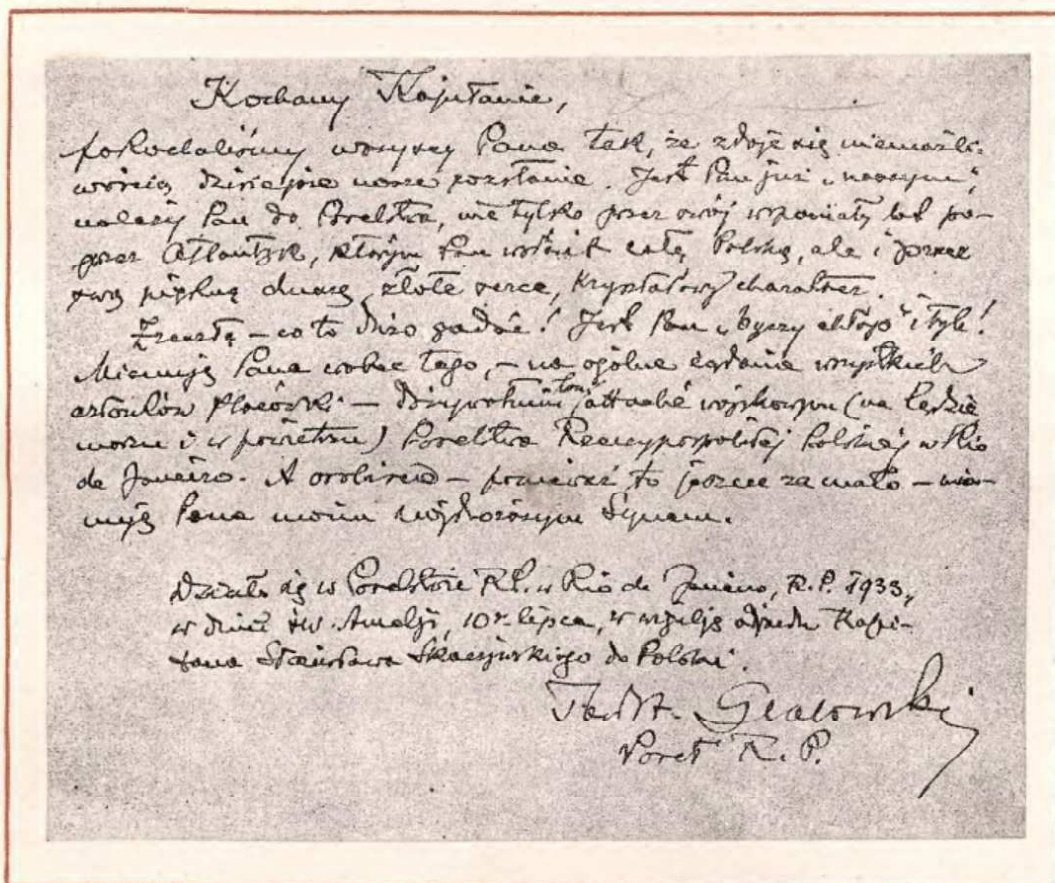 Kochany Kapitanie,
pokochaliśmy wszyscy Pana tak, że zdaje się niemożli-
wością dzisiejsze nasze rozstanie. Jest Pan już „naszym”,
należy Pan do Poselstwa, nie tylko przez swój wspaniały lot po-
przez Atlantyk, którym Pan wsławił całą Polskę, ale i przez
swą piękną duszę, złote serce, kryształowy charakter.
Zresztą – co tu dużo gadać! Jest Pan „byczy chłop” i tyle!
Mianuję Pana wobec tego, – na ogólne żądanie wszystkich
członków placówki – dożywotnim attaché wojskowym (na lądzie
morzu i w powietrzu) Poselstwa Rzeczypospolitej Polskiej w Rio
de Janeiro. A osobiście – ponieważ to jeszcze za mało – mia-
nuję Pana moim najdroższym Synem.
Działo się w Poselstwie R.P. w Rio de Janeiro, R.P. 1933,
w dniu św. Amelji, 10 lipca, w wigilję odjazdu Kapi-
tana Stanisława Skarżyńskiego do Polski.
Grabowski
Poseł R. P.